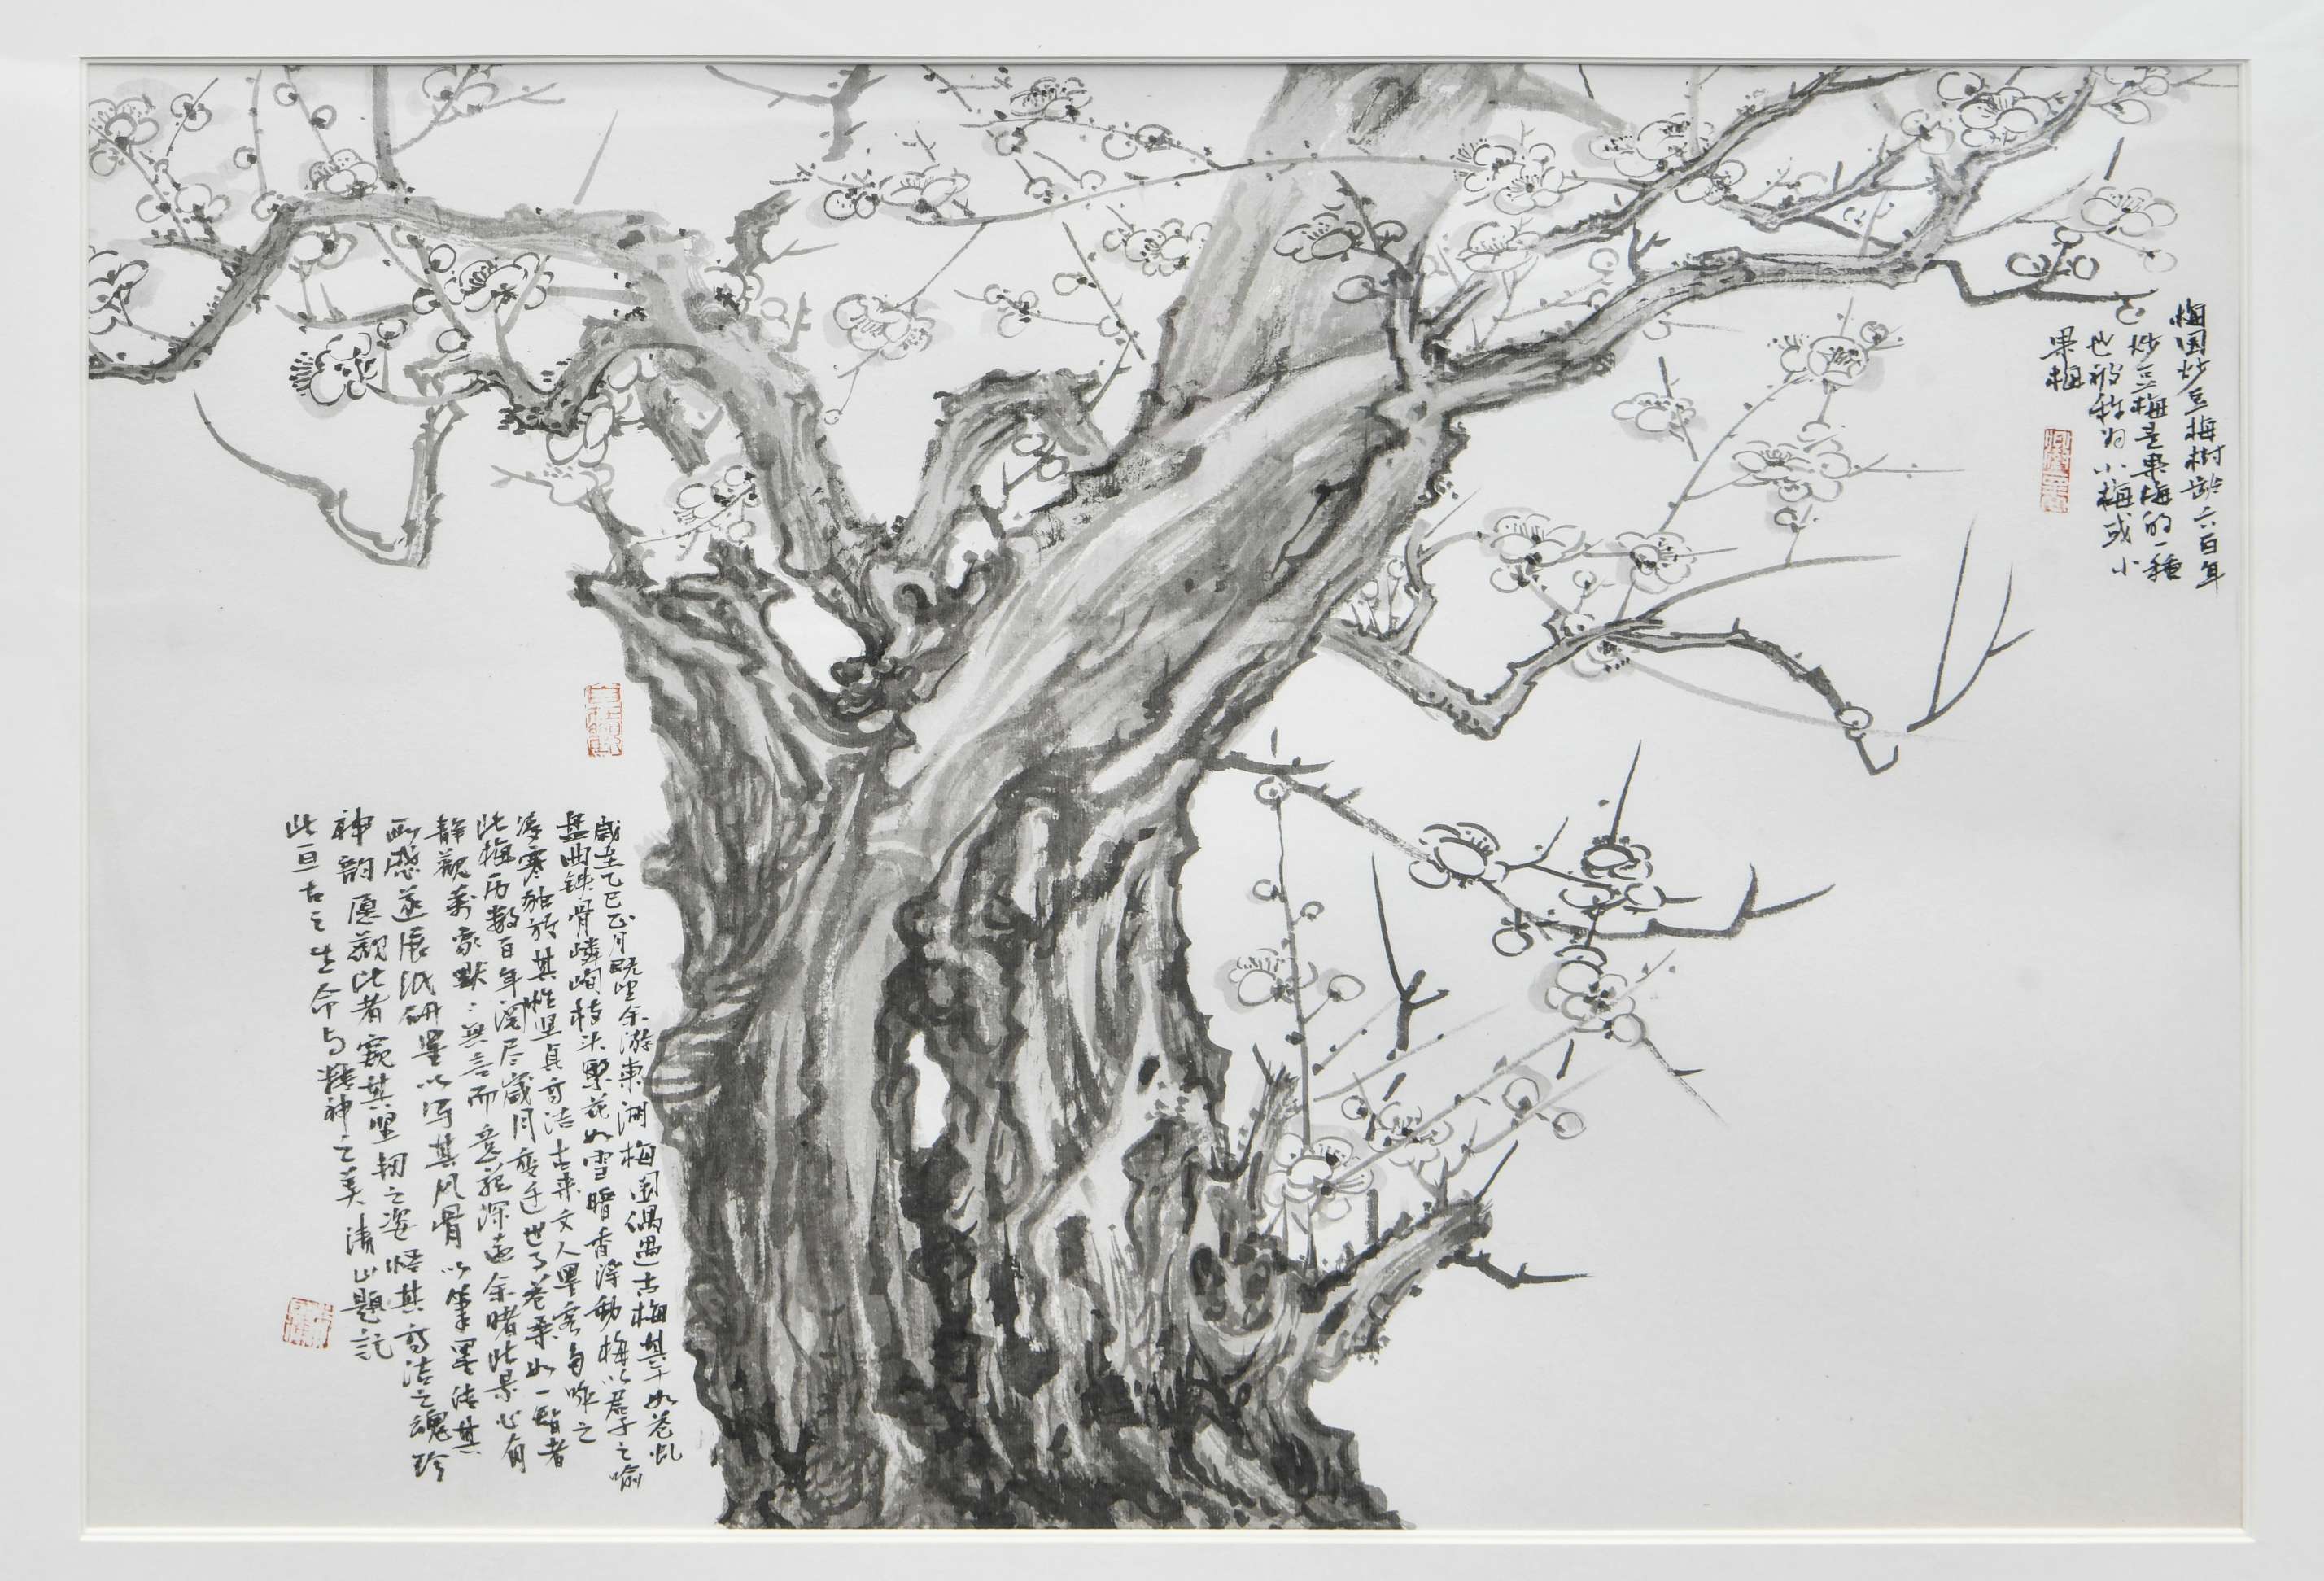 梅園炒豆梅樹齡六百年
炒豆梅是果梅的一種
也被称为小梅或小
果梅
歲在乙巳正月既望余游東湖梅園偶遇古梅其干如苍虬
盘曲铁骨嶙峋枝头聚花如雪暗香浮動梅以君子之喻
凌寒独放其性坚貞高洁古来文人墨客多咏之
此梅历数百年阅尽歲月变迁世事苍桑如一智者
静觀萬象默默無言而意蕴深遠余睹此景心有
所感遂展紙研墨以写其风骨以筆墨传其
神韵愿觀此者窥其坚韧之姿悟其高洁之魂珍
此亘古之生命与精神之美清山題記